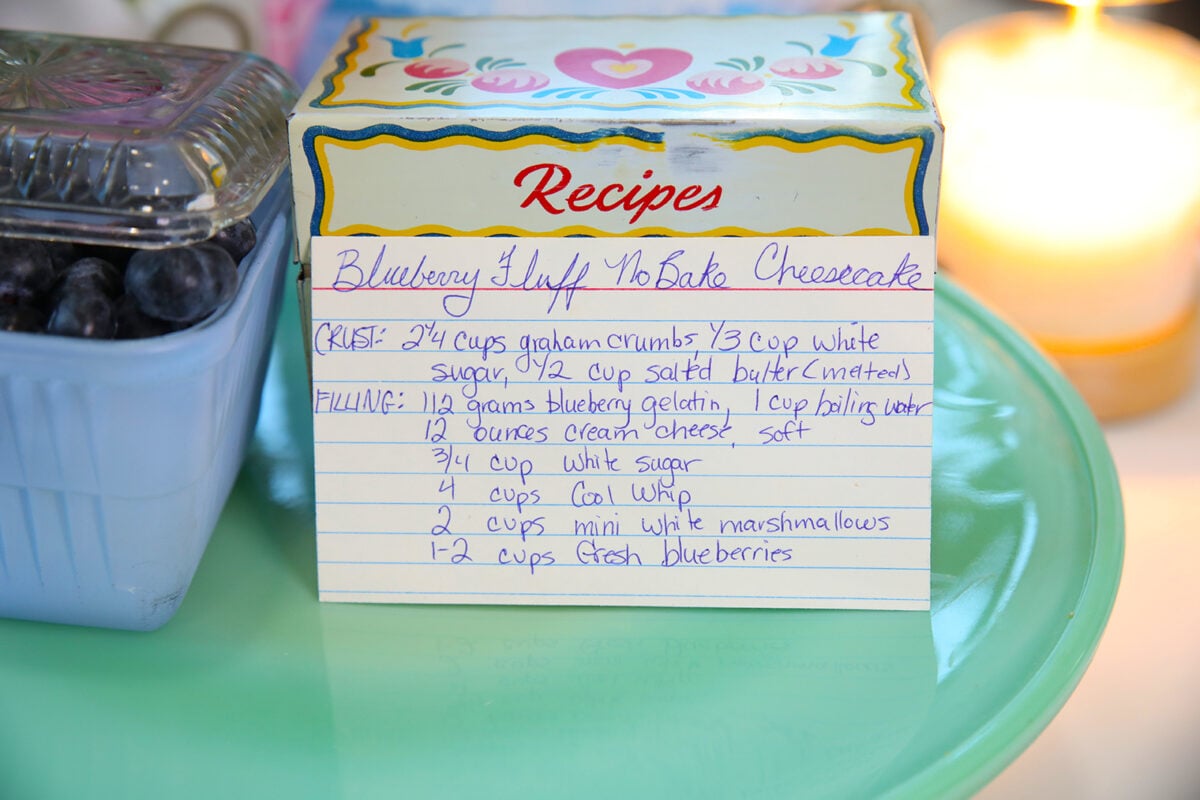 Recipes
Blueberry Fluff No Bake Cheesecake
CRUST: 2 1/4 cups graham crumbs, 1/3 cup white
sugar, 1/2 cup salted butter (melted)
FILLING: 112 grams blueberry gelatin, 1 cup boiling water
12 ounces cream cheese, soft
3/4 cup white sugar
4 cups Cool Whip
2 cups mini white marshmallows
1-2 cups fresh blueberries